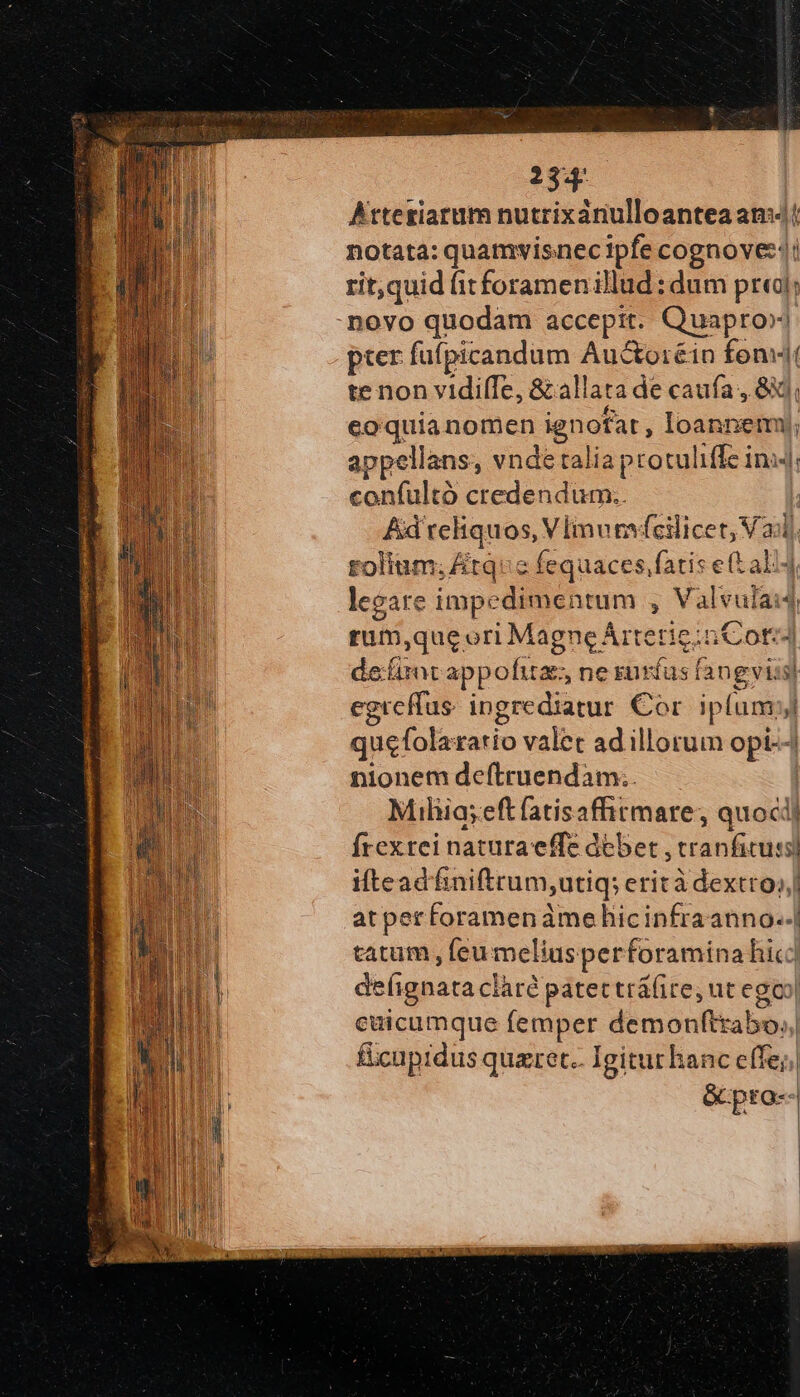 234
Arteriarum nutrix à nullo antea
notata: quamvis nec ipſe cognove-
rit, quid ſit foramen illud: dum pro
novo quodam accepit. Quapro-
pter ſuſpicandum Auctorē in fon-
te non vidiſſe, & allata de cauſa, &
eo quia nomen ignorat, Ioannem
appellans, vnde talia protuliſſe in-
conſultò credendum.
Ad reliquos, Vlmum ſcilicet, Va-
rolium, Atque ſequaces, ſatis eſt al-
legare impedimentum, Valvula-
rum, quę ori Magnę Arterię in Cor
deſinūt appoſitæ, ne rurſus ſangvis
egreſſus ingrediatur Cor ipſum,
quę ſola ratio valet ad illorum opi-
nionem deſtruendam.
Mihiq; eſt ſatis affirmare, quod
ſi ex rei natura eſſe debet, tranſitus
iſte ad ſiniſtrum, utiq; erit à dextro,
at per foramen à me hic infra anno-
tatum, ſeu melius per foramina hic
deſignata clarè patet trāſire, ut ego
cuicumque ſemper demonſtrabo,
ſi cupidus quæret. Igitur hanc eſſe,
& pro-